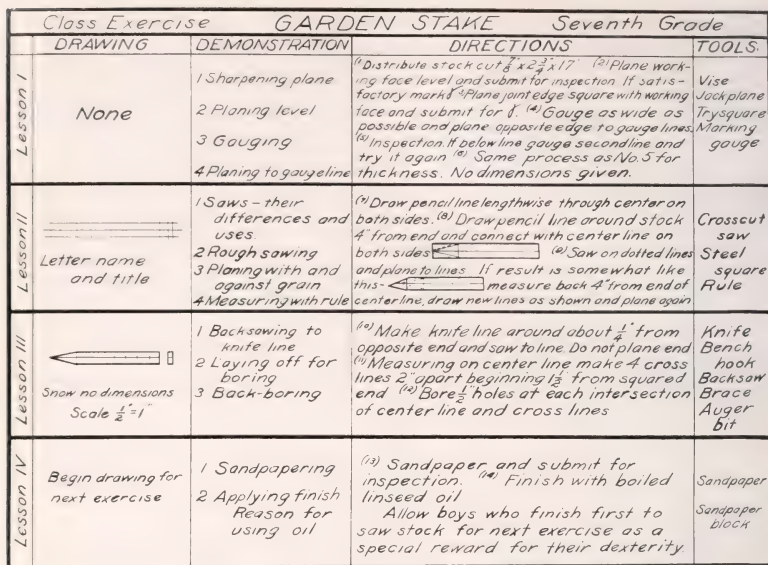 Class Exercise GARDEN STAKE Seventh Grade
DRAWING DEMONSTRATION DIRECTIONS TOOLS.
Lesson I
None
1 Sharpening plane
2 Planing level
3 Gauging
4 Planing to gauge line
(1) Distribute stock cut 7/8" x 2 3/4" x 17" (2) Plane work-
ing face level and submit for inspection. If satis-
factory mark ɣ (3) Plane joint edge square with working
face and submit for ɣ. (4) Gauge as wide as
possible and plane opposite edge to gauge lines.
(5) Inspection. If below line gauge second line and
try it again (6) Same process as No. 5 for
thickness. No dimensions given.
Vise
Jackplane
Trysquare
Marking
gauge
Lesson II
Letter name
and title
1 Saws – their
differences and
uses.
2 Rough sawing
3 Planing with and
against grain
4 Measuring with rule
(7) Draw pencil line lengthwise through center on
both sides. (8) Draw pencil line around stock
4" from end and connect with center line on
both sides (9) Saw on dotted lines
and plane to lines If result is somewhat like
this- measure back 4" from end of
center line, draw new lines as shown and plane again
Crosscut
saw
Steel
square
Rule
Lesson III
Show no dimensions
Scale 1/2" = 1"
1 Backsawing to
knife line
2 Laying off for
boring
3 Back-boring
(10) Make knife line around about 1/4" from
opposite end and saw to line. Do not plane end
(11) Measuring on center line make 4 cross
lines 2" apart beginning 1 1/2" from squared
end (12) Bore 1/2" holes at each intersection
of center line and cross lines
Knife
Bench
hook
Backsaw
Brace
Auger
bit
Lesson IV
Begin drawing for
next exercise
1 Sandpapering
2 Applying finish
Reason for
using oil
(13) Sandpaper and submit for
inspection. (14) Finish with boiled
linseed oil
Allow boys who finish first to
saw stock for next exercise as a
special reward for their dexterity.
Sandpaper
Sandpaper
block